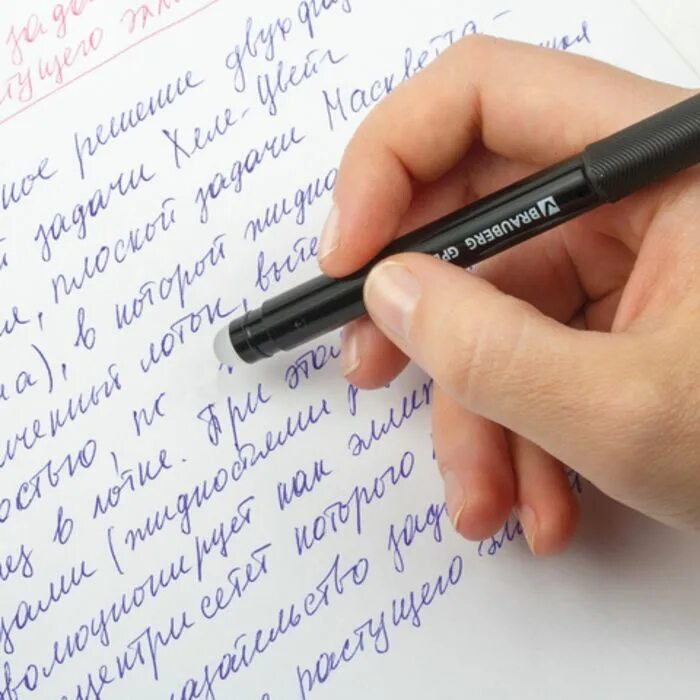 зада
стущего элл
ное решение двух фаз
й задачи Хеле-Цвейг
я, плоской задачи Маскветта-
), в которой жидко
ченный лоток, выте
остью,
ез в лотке. При этом
ами (жидкостями
волюционирует как эллип
сцентриситет которого
казательство зад
растущего эл
BRAUBERG GP